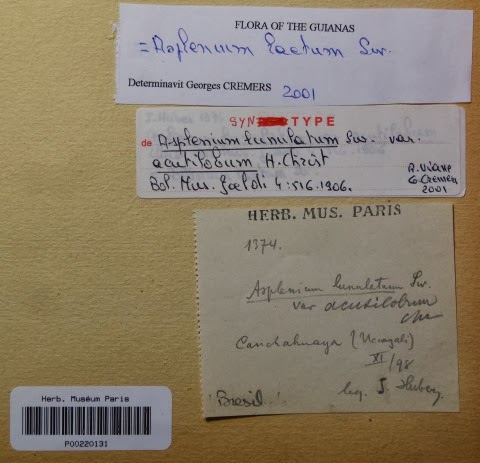 FLORA OF THE GUIANAS
= Asplenium laetum Sw.
Determinavit Georges CREMERS 2001
SYN TYPE
de Asplenium lunulatum Sw. var.
acutilobum H. Christ
Bol. Mus. Goeldi 4:516.1906.
R. Viane
G. Cremers
2001
HERB. MUS. PARIS
1374.
Asplenium lunulatum Sw.
var acutilobum
Chr
(Ucayali)
XI/98
leg. J. Huber
'Bresil.'
Herb. Muséum Paris
P00220131